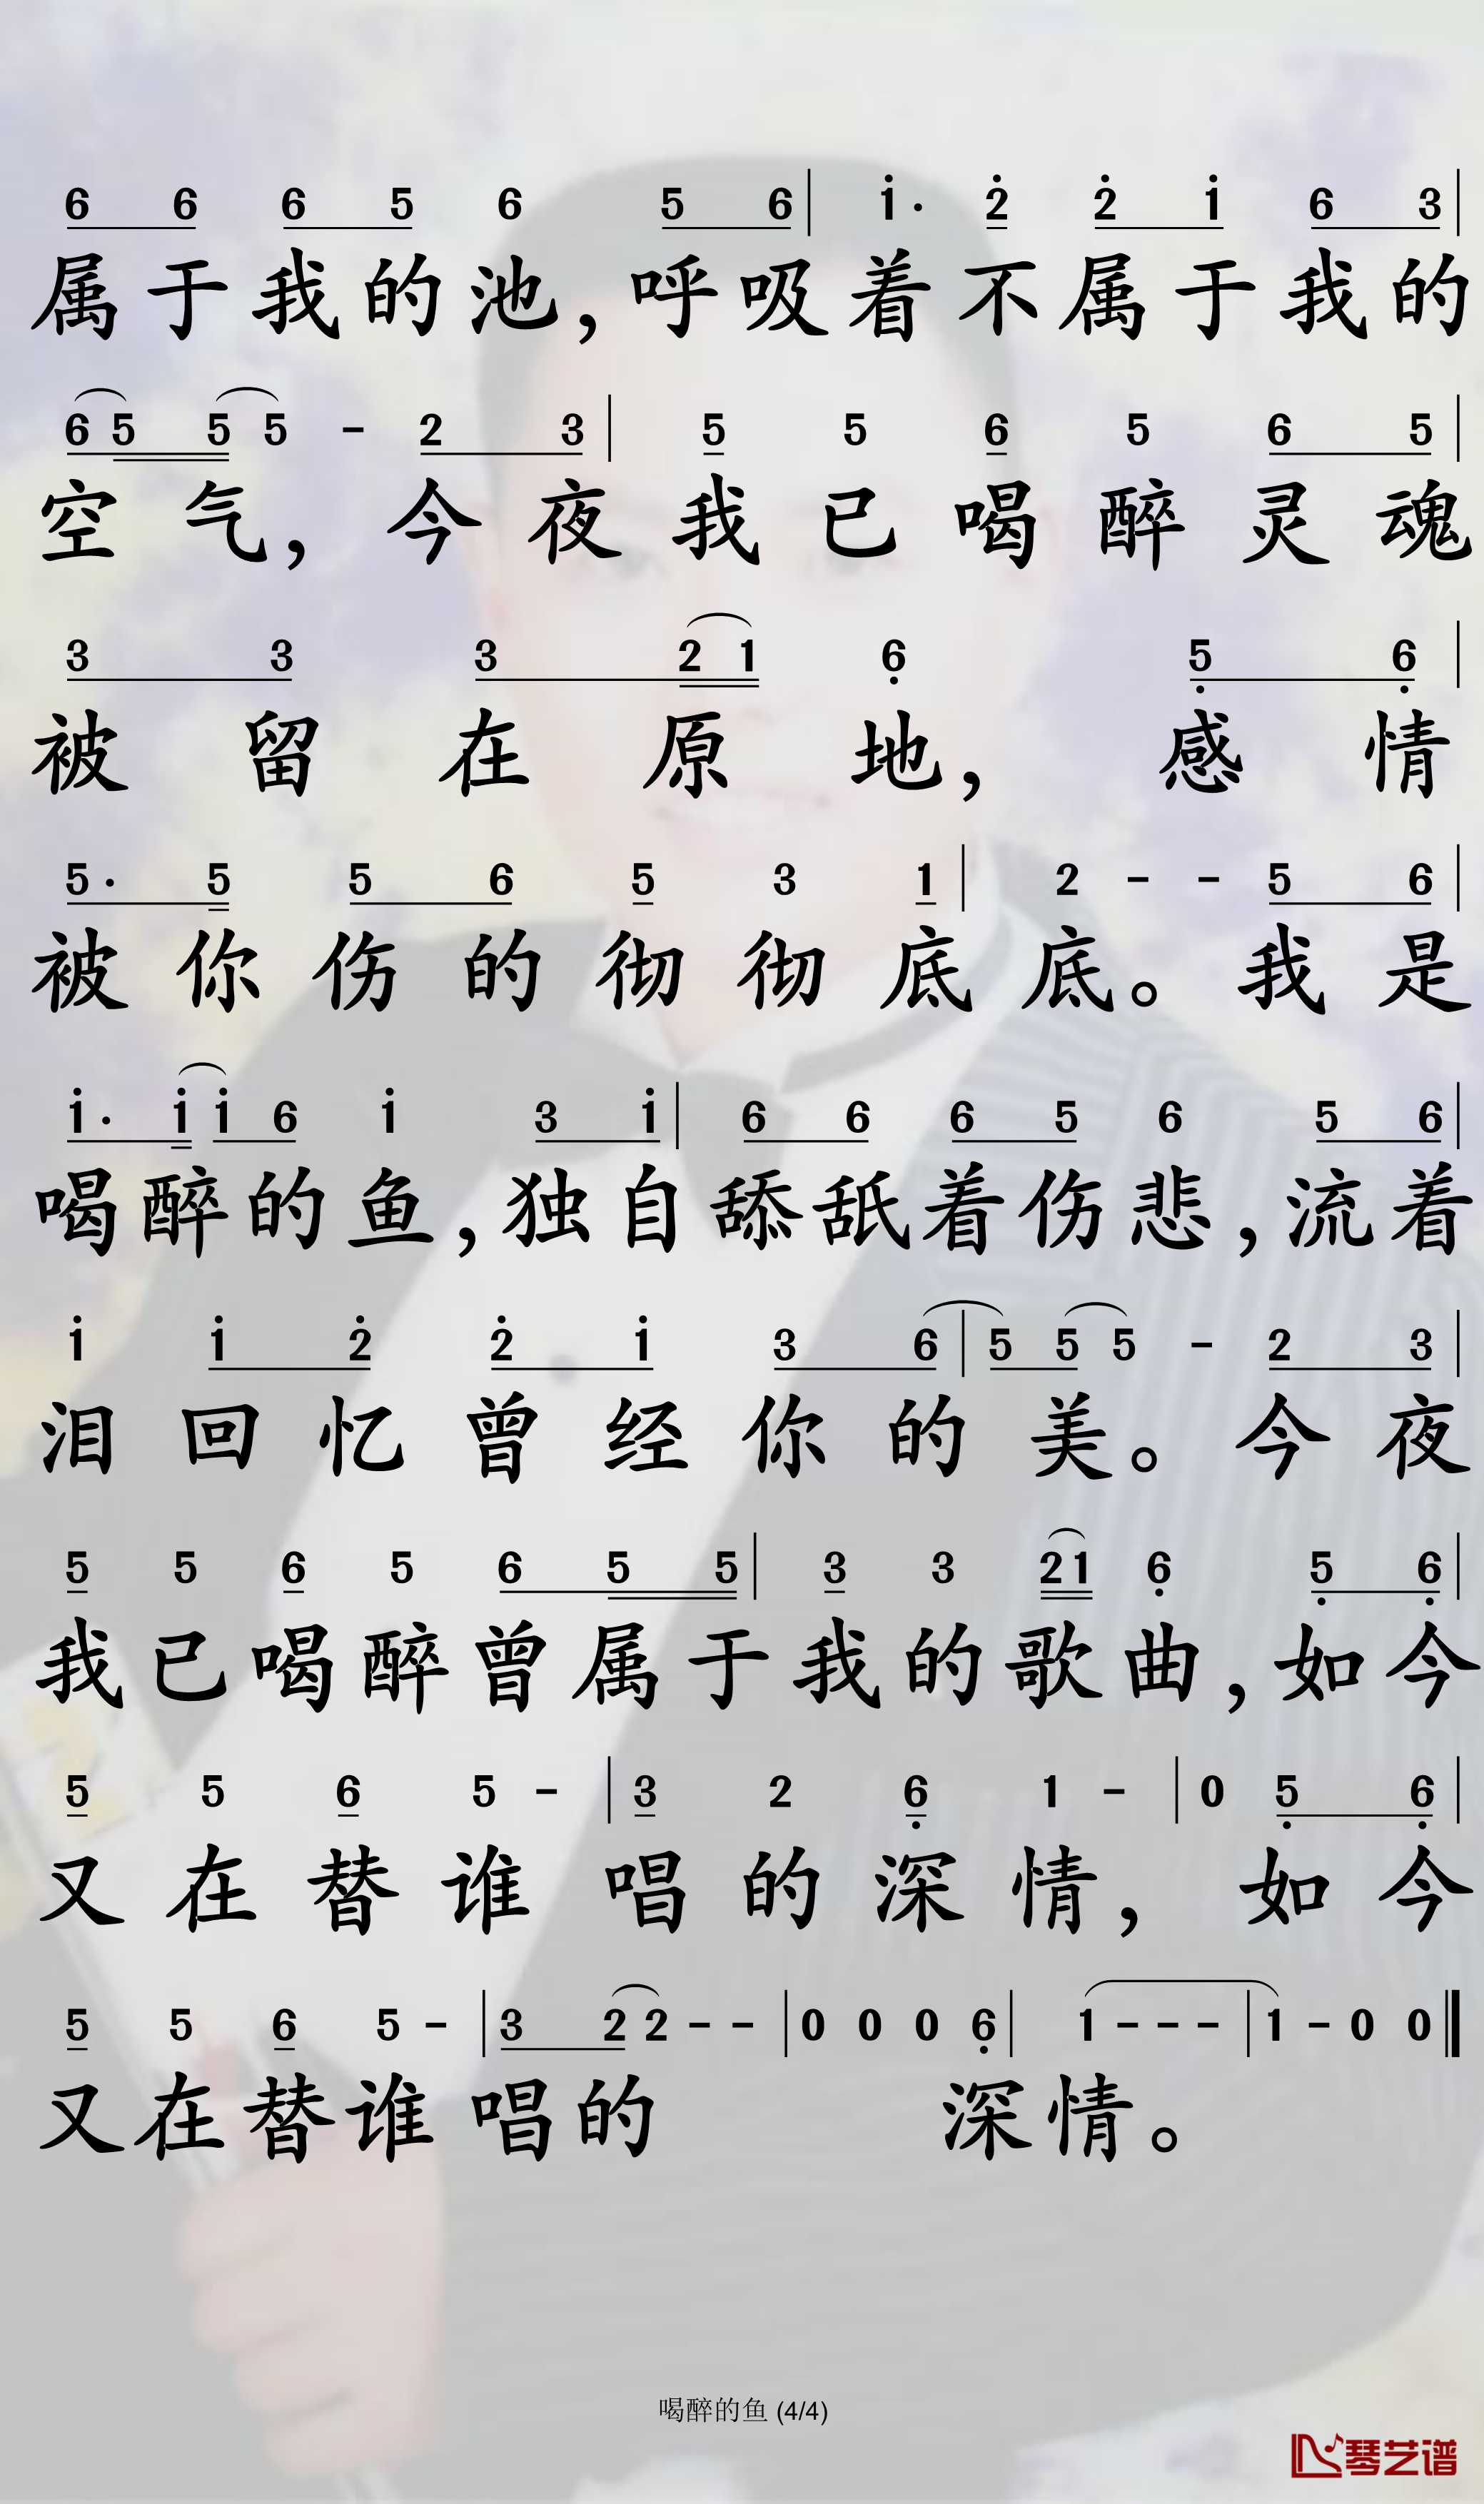 6 6 6 5 6 5 6 | i · 2̇ 2̇ i 6 3 |
属于我的池，呼吸着不属于我的
6 5 5 5 - 2 3 | 5 5 6 5 6 5 |
空气，今夜我已喝醉灵魂
3 3 3 2 1 6̣ 5̣ 6̣ |
被留在原地，感情
5 · 5 5 6 5 3 1 | 2 - - 5 6 |
被你伤的彻彻底底。我是
i · i i 6 i 3 i | 6 6 6 5 6 5 6 |
喝醉的鱼，独自舔舐着伤悲，流着
i i 2̇ 2̇ i 3 6 | 5 5 5 - 2 3 |
泪回忆曾经你的美。今夜
5 5 6 5 6 5 5 | 3 3 2 1 6̣ 5̣ 6̣ |
我已喝醉曾属于我的歌曲，如今
5 5 6 5 - | 3 2 6̣ 1 - | 0 5̣ 6̣ |
又在替谁唱的深情，如今
5 5 6 5 - | 3 2 2 - - | 0 0 0 6̣ | 1 - - - | 1 - 0 0 ‖
又在替谁唱的深情。
喝醉的鱼 (4/4)
琴艺谱